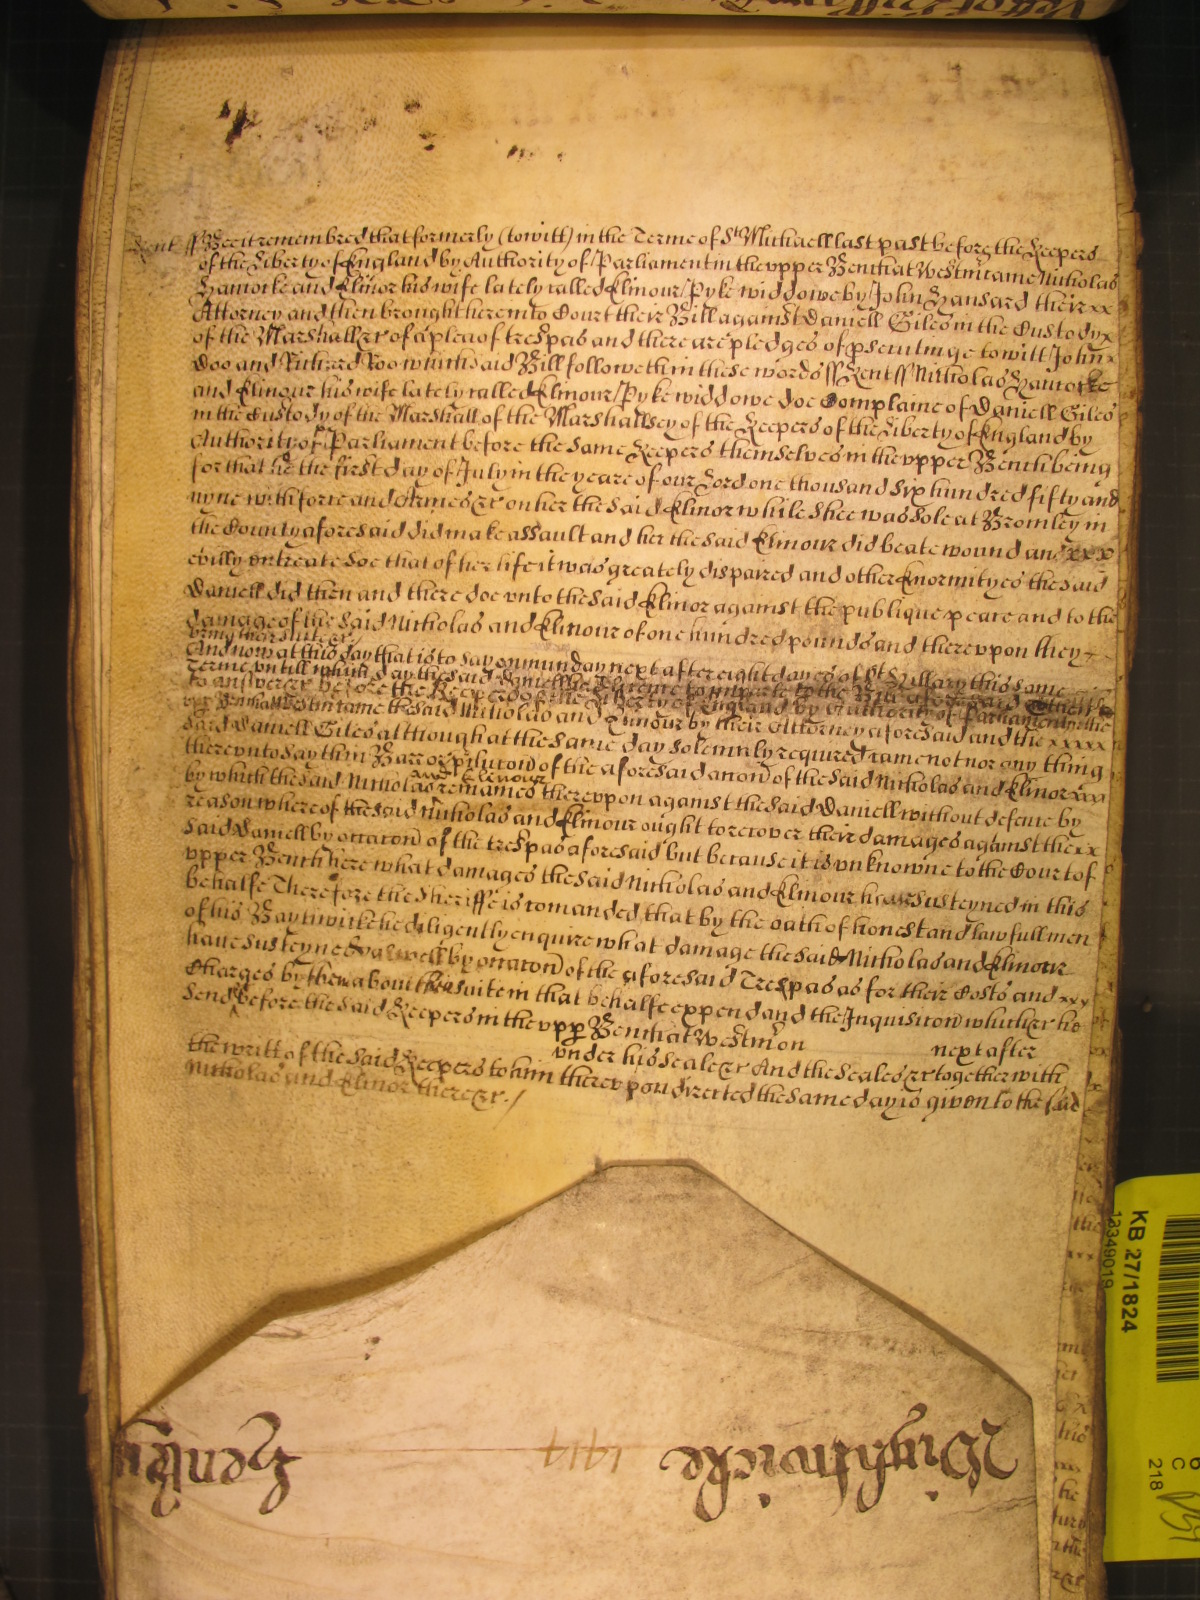 Kent ss Bee it remembred that formerly (to witt) in the Terme of St Michaell last past before the Keepers
of the Liberty of England by Authority of Parliament in the vpper Bench at Westm came Nicholas
Haiocke and Elinor his wife lately called Elinour Pyke widdowe by John Hansard their xx
Attorney and then brought here into Court their Bill against Daniell Giles in the Custody x
of the Marshall &c of a plea of trespas and there are pledges of psecutinge to witt John x
Doo and Richard Roo which said Bill followeth in these words ss Kent ss Nicholas
and Elinour his wife lately called Elinour Pyke widdowe doe Complaine of Daniell Giles
in the Custody of the Marshall of the Marshallsey of the Keepers of the Liberty of England by
Authority of Parliament before the same Keepers themselves in the vpper Bench being
for that he the first day of July in the yeare of our Lord one thousand six hundred fifty and
nyne with force and Armes &c on her the said Elinor while shee was sole at Bromley in
the County aforesaid did make assault and her the said Elinour did beate wound and xxx
evilly entreate soe that of her life it was greately dispaired and other Enormityes the said
Daniell did then and there doe vnto the said Elinor against the publique peace and to the
damage of the said Nicholas and Elinour of one hundred pounds and therevpon they
bring their suite &c /
And now at this day that is to say on munday next after eight dayes of St Hillary this same
Terme vntill which day the said Daniell had licence to imparle to the Bill aforesaid
to answere &c before the Keepers of the Liberty of England by Authority of Parliament in the
vpper Bench at Westm came the said Nicholas and Elinour by their Attorney aforesaid and the xxxx
said Daniell Giles although at the same day solemnly required came not nor any thing
therevnto say th in Barr or pclucon of the aforesaid accon of the said Nicholas and Elinor xxx
and Elinour
by which the said Nicholas remaines therevpon against the said Daniell without defence by
reason whereof the said Nicholas and Elinour ought to recover their damages against the xx
said Daniell by occacon of the trespas aforesaid but because it is vnknowne to the Court of
vpper Bench here what damages the said Nicholas and Elinour have susteyned in this
behalfe Therefore the Sheriffe is comanded that by the oath of honest and lawfull men
of his Bayliwicke he diligently enquire what damage the said Nicholas and Elinour
have susteyned as well by occacon of the aforesaid Trespas as for their Costs and xxx
Charges by them about their suite in that behalfe expended and the Inquisicon which &c he
send before the said Keepers in the vpp Bench at Westm on next after
vnder his seale &c And the seales &c together with
the writt of the said Keepers to him therevpon directed the same day is given to the said
Nicholas and Elinor there &c /
Wightwicke 1414 Henley
KB 27/1824
12349019
218